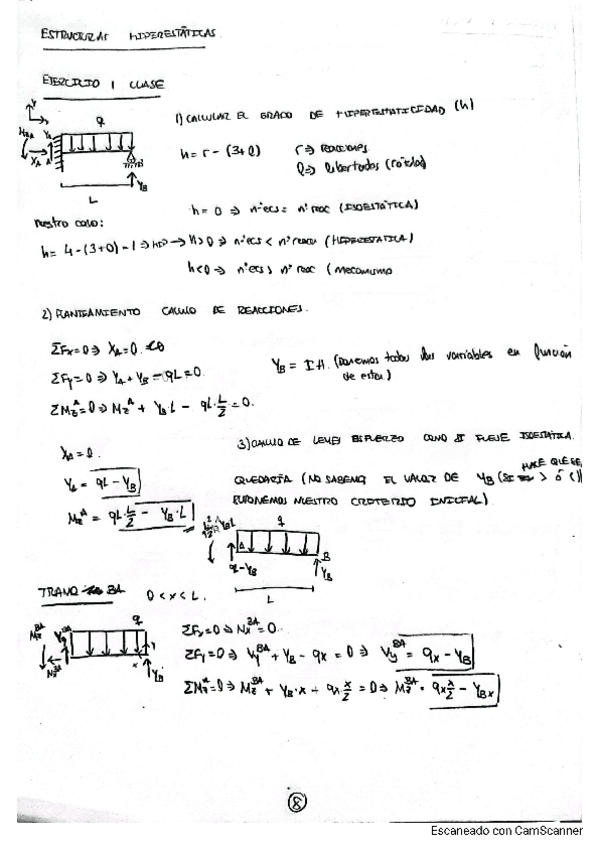 ESTRUCTURAS HIPERESTÁTICAS.
EJERCICIO 1 CLASE
1) CALCULAR EL GRADO DE HIPERESTATICIDAD (h)
h = r - (3+l) r ⇒ REACCIONES
l ⇒ libertades (rótulas)
q
L
h = 0 ⇒ nºecs = nº reac (ISOESTÁTICA)
nuestro caso:
h = 4 - (3+0) = 1 ⇒ HIP → h > 0 ⇒ nºecs < nº reacc (HIPERESTATICA)
h < 0 ⇒ nºecs > nº reac (MECANISMO
2) PLANTEAMIENTO CALCULO DE REACCIONES.
ΣFx = 0 ⇒ XA = 0.
ΣFy = 0 ⇒ YA + YB - qL = 0.
YB = I.H. (Ponemos todas las variables en función
de estas)
ΣMz^A = 0 ⇒ Mz^A + YB·L - qL·L/2 = 0.
XA = 0.
3) CALCULO DE LEYES ESFUERZO COMO SI FUESE ISOESTÁTICA.
YA = qL - YB
QUEDARÍA (NO SABEMOS EL VALOR DE YB (SI > ó <)
SUPONEMOS NUESTRO CRITERIO INICIAL).
Mz^A = qL·L/2 - YB·L
q
qL - YB
B
YB
L
TRAMO BA 0 < x < L.
q
ΣFx = 0 ⇒ Nx^BA = 0.
ΣFy = 0 ⇒ Vy^BA + YB - qx = 0 ⇒ Vy^BA = qx - YB
ΣMz = 0 ⇒ Mz^BA + YB·x - qx·x/2 = 0 ⇒ Mz^BA = qx·x/2 - YBx
8
Escaneado con CamScanner